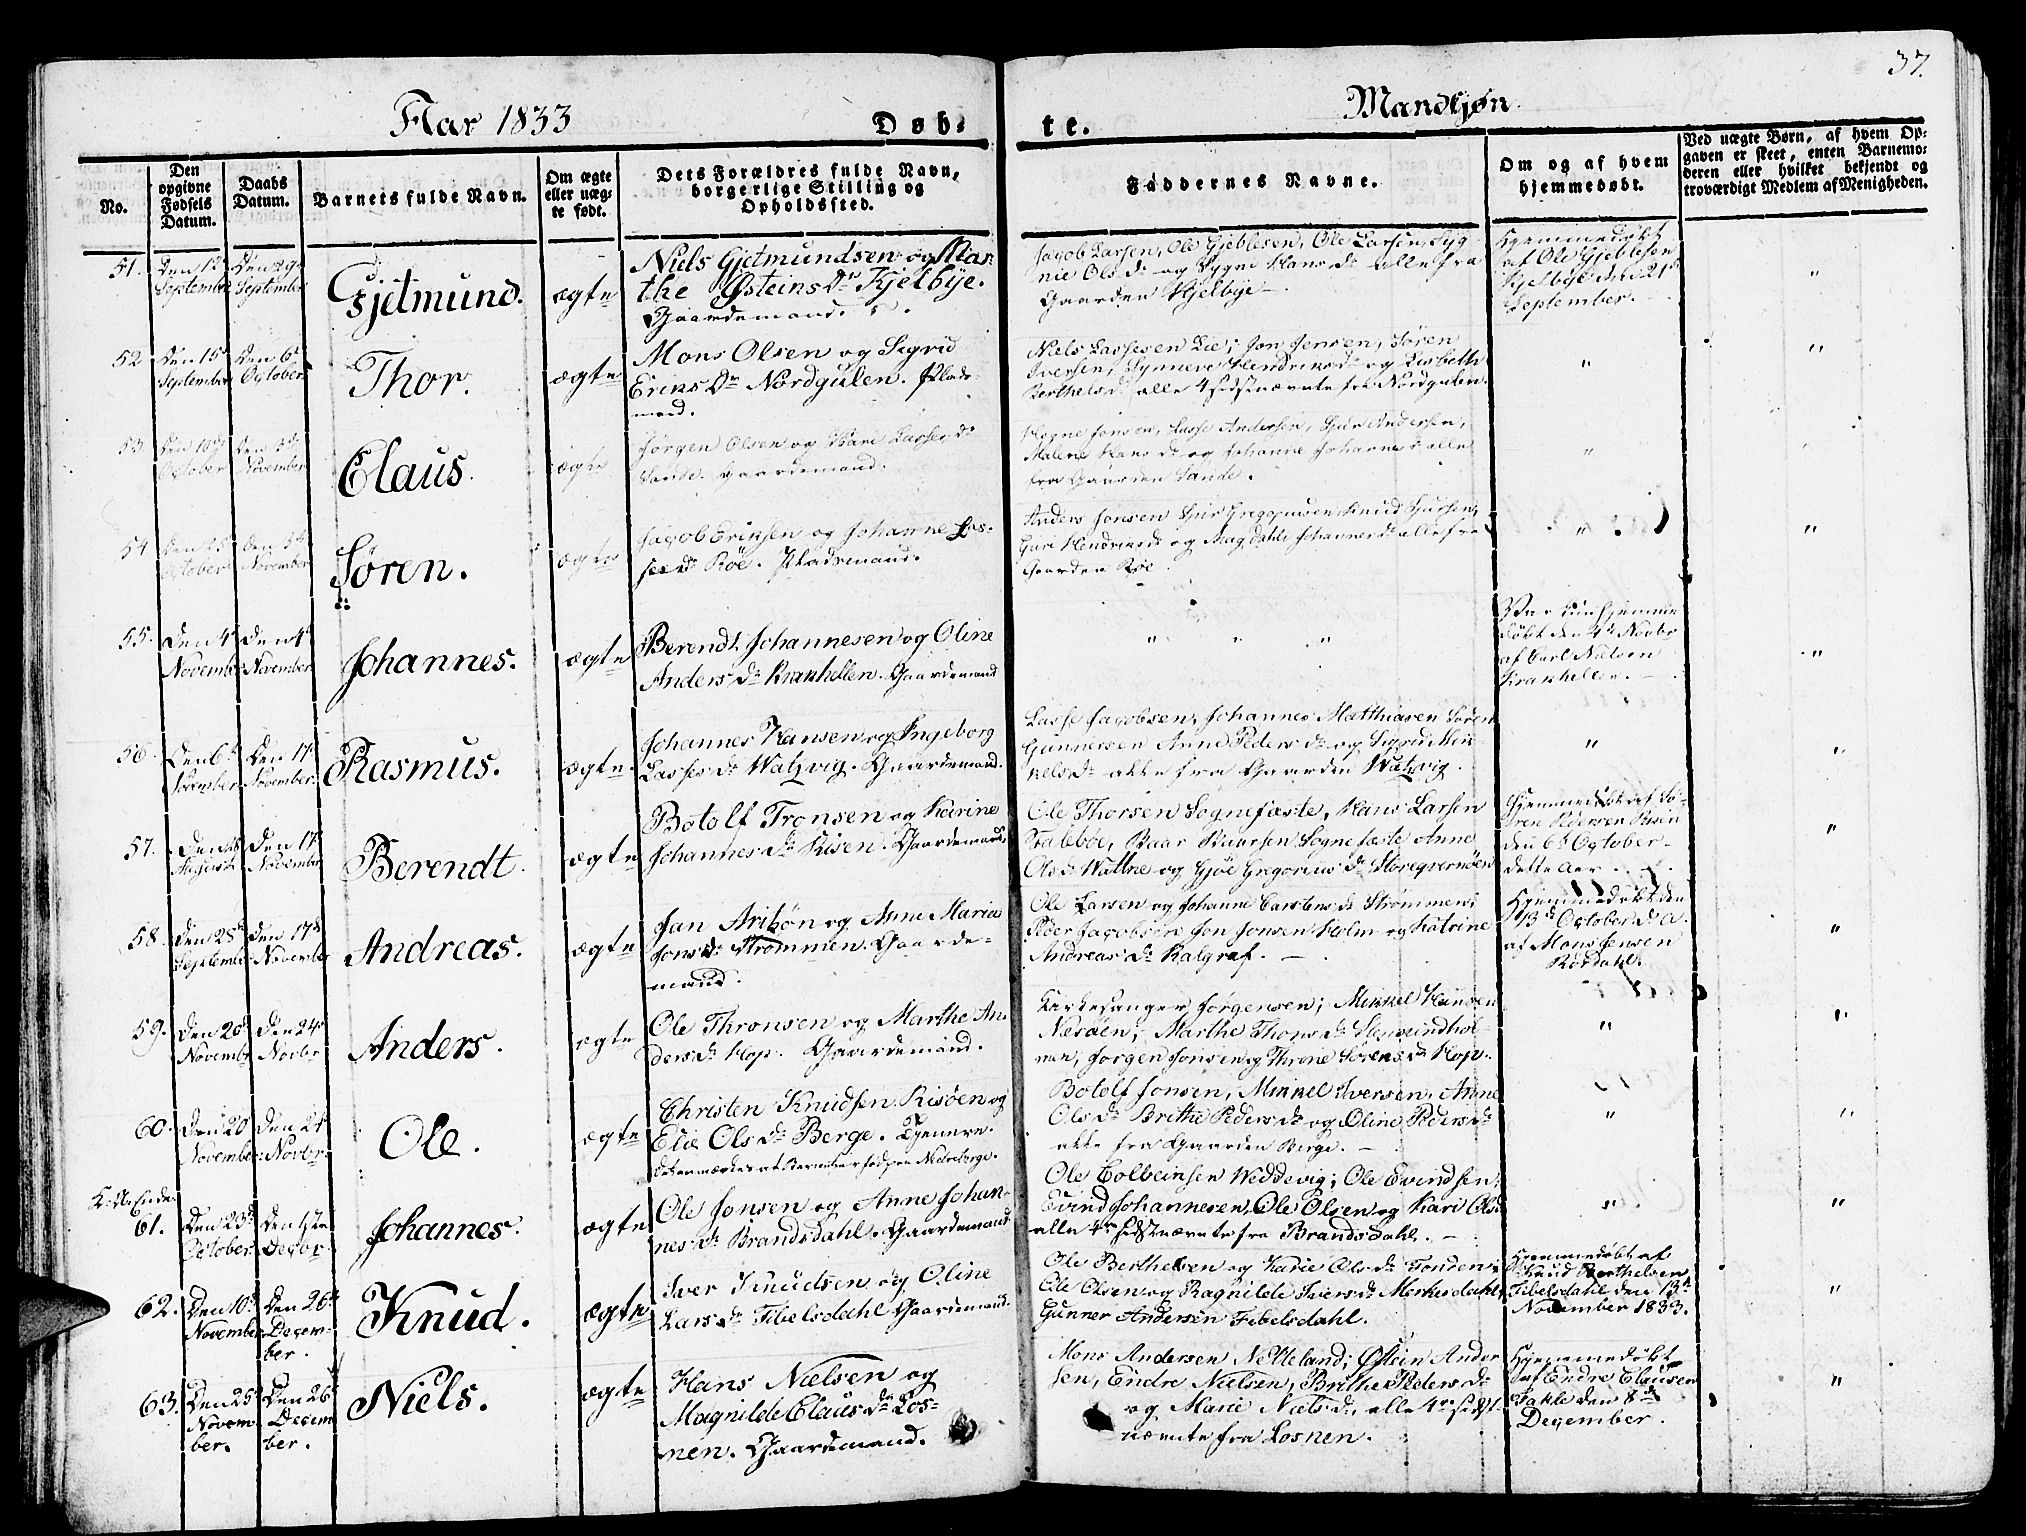 37.
Aar 1833
Døb-
te.
Mandkjøn.
No.
Den opgivne Fødsels Datum.
Daabs Datum.
Barnets fulde Navn.
Om ægte eller uægte født.
Dets Forældres fulde Navn, borgerlige Stilling og Opholdssted.
Faddernes Navne.
Om og af hvem hjemmedøbt.
Ved uægte Børn, af hvem Opgaven er skeet, enten Barnemoderen eller hvilket bekjendt og troværdigt Medlem af Menigheden.
51.
September
Den 29
September
Gjetmund.
ægte
Niels Gjetmundsen og Mar-
the Østeins Dr Kjelbye.
Gaardemand.
Jacob Larsen, Ole Gjeblesen, Ole Larsen,
nie Ols Dr og Sygni Hans Dr alle fra
Gaarden Kjelbye
Hjemmedøbt
af Ole Gjeblesen
Kjelbye den 21
September.
"
52
Den 15
September
Den 6
October
Thor.
ægte
Mons Olsen og Sigrid
Eriks Dr Nordgulen. Plads
mand.
Niels Lassesen Lie; Jon Jensen, Søren
Iversen, Synneve Hendriks Dr og Lisbeth
Berthels Dr alle 4 sidstnævnte fra Nordgulen.
"
"
53
Den 10
October
Den 3
November
Claus.
ægte
Jørgen Olsen og Mari Lasses Dr
Sande. Gaardemand.
Hogne Jensen, Lasse Andersen, Sjur Andersen,
Malene Hans Dr og Johanne Johannes Dr alle
fra Gaarden Sande.
"
54
Den 25
October
Den 3
November
Søren.
ægte
Jacob Eriksen og Johanne Las-
ses Dr Røe. Pladsmand.
Anders Jonsen Sjur Gregoriusen Knud Sjursen,
Guri Hendriks Dr og Magdahle Johannes Dr alle fra
Gaarden Røe.
"
"
55.
Den 4
November
Den 4
November
Johannes.
ægte
Berendt Johannesen og Oline
Anders Dr Krakhellen. Gaardemand
" " "
Var kun hjemme
døbt den 4de Novbr
af Carl Nielsen
Krakhellen.
"
56.
Den 6
November
Den 17
November.
Rasmus.
ægte.
Johannes Hansen og Ingeborg
Lasses Dr Watzvig. Gaardemand.
Lasse Jacobsen, Johannes Matthiasen Søren
Gunnersen Anne Peders Dr og Sigrid Mik
kels Dr alle fra Gaarden Watzvig.
"
"
57.
August
Den 17
November
Berendt.
ægte
Botolf Tronsen og Karine
Johannes Dr Risen. Gaardemand,
Ole Thorsen Sognefæste, Hans Larsen
Baar Baarsen Sognefæste Anne
Ols Dr Wattne og Gjøe Gregorius Dr Storeqvernøen
Hjemmedøbt af Sø-
ren Pedersen Risen
den 6 October
dette Aar.
"
58.
Den 28
September
Den 17
November
Andreas.
ægte
Jan Aribøn og Anne Maria
Jons Dr Strømmen. Gaarde-
mand.
Ole Larsen og Johanne Carstens Dr Strømmen;
Peder Jacobsen Jon Jonsen Holm og Katrine
Andreas Dr Kalgraf.
Hjemmedøbt den
13 October d. A.
af Mons Jensen
Rørdahl.
"
59.
Den 20
Novembr
Den 24
Novbr
Anders.
ægte
Ole Thronsen og Marthe An-
ders Dr Hop. Gaardemand.
Kirkesanger Jørgensen; Mikkel Hansen
Næsøen; Marthe Thors Dr Steensundhol-
men, Jørgen Jonsen og Throne Sørens Dr Hop.
"
"
60.
Den 20
November
Den 24
Novbr.
Ole.
ægte
Christen Knudsen Risøen og
Elie Ols Dr Berge. Tjenere.
Botolf Jonsen, Mikkel Iversen, Anne
Ols Dr Brithe Peders Dr og Oline Peders Dr
alle fra Gaarden Berge.
"
"
K. A. Ende.
61.
Den 23
October
Den 1ste
Decbr
Johannes.
ægte
Ole Jonsen og Anne Johan-
nes Dr Brandsdahl. Gaardemand.
Ole Colbeinsen Weddevig; Ole Evindsen,
Evind Johannesen, Ole Olsen og Kari Ols Dr
alle 4re sidstnævnte fra Brandsdahl.
"
"
62.
Den 10
November
Den 26
Decem-
ber.
Knud.
ægte
Iver Knudsen og Oline
Lars Dr Fibelsdahl Gaardemand.
Ole Berthelsen og Karie Ols Dr Tonden;
Ole Olsen og Ragnilde Ivers Dr Merkesdahl;
Gunner Andersen Fibelsdahl.
Hjemmedøbt af
Knud Berthelsen
Fibelsdahl den 13
November 1833.
"
63.
Den 25
Novem-
ber.
Den 26
Decem
ber.
Niels.
ægte
Hans Nielsen og
Magnilde Claus Dr Los-
nen. Gaardemand.
Mons Andersen Nelleland; Østein Ander
sen, Endre Nielsen, Brithe Peders Dr
og Marie Niels Dr, alle 4re sidst-
nævnte fra Losnen.
Hjemmedøbt
af Endre Clausen
Takle den 8de
December.
"